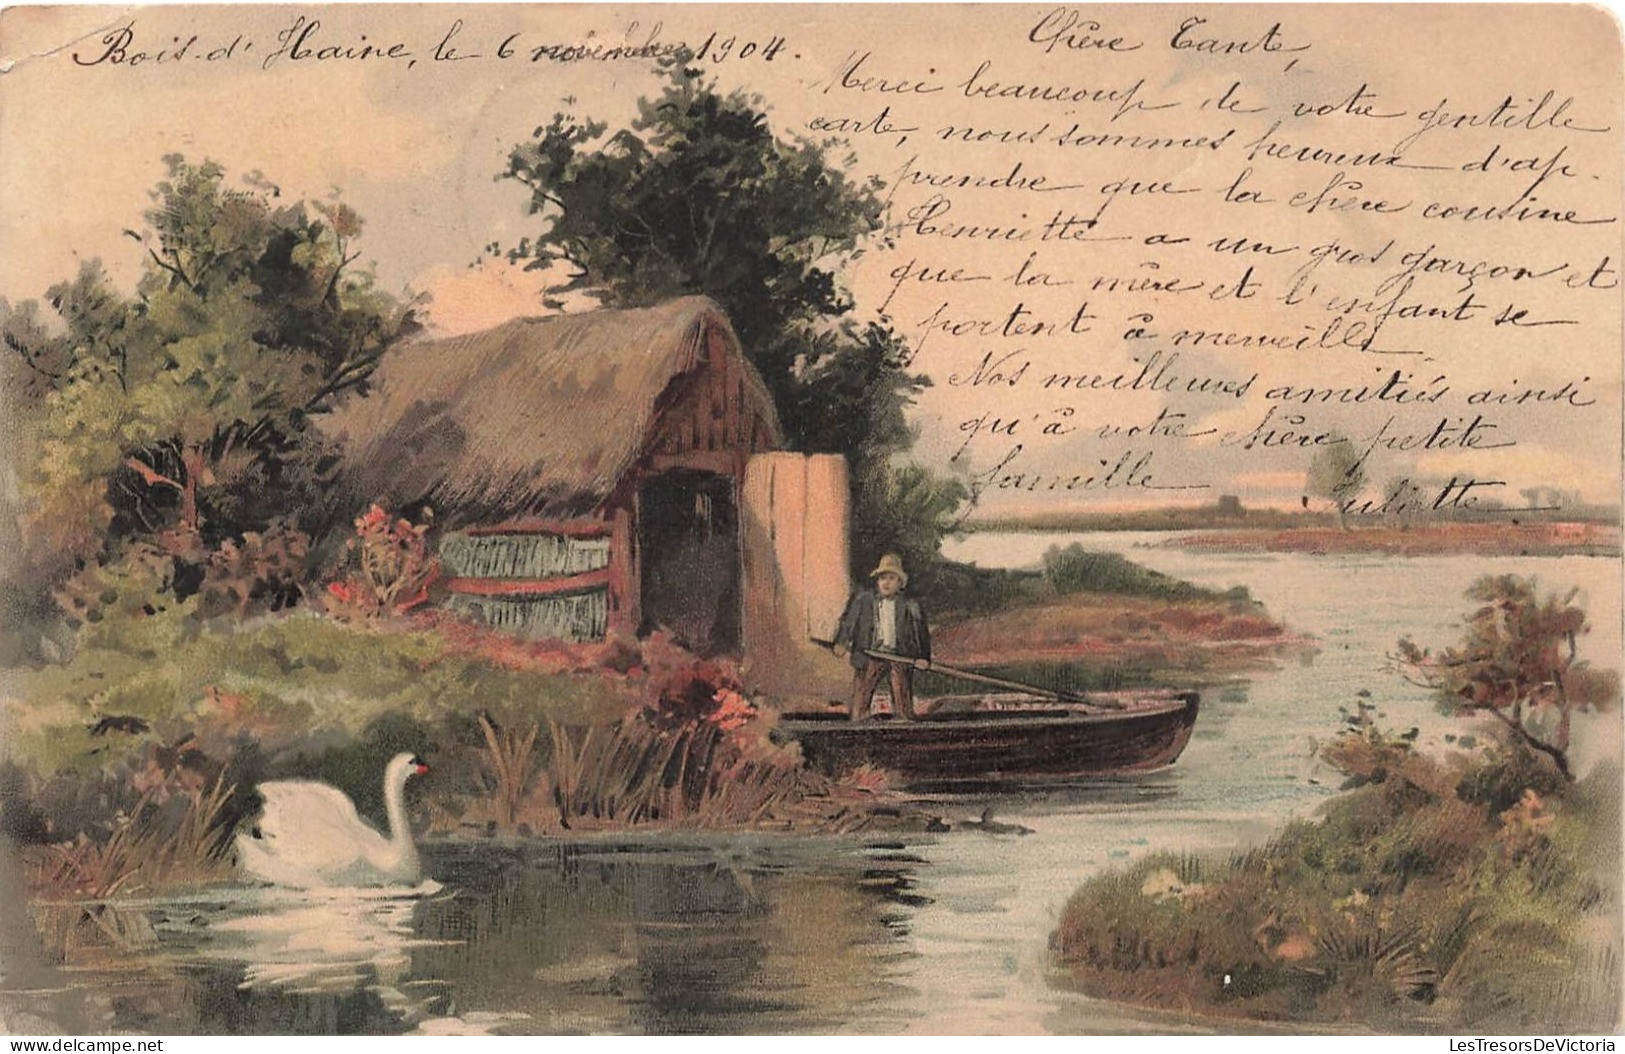 Bois-d'Haine, le 6 novembre 1904.
Chère Tante,
Merci beaucoup de votre gentille
carte, nous sommes heureux d'ap-
prendre que la chère cousine
Henriette a un gros garçon et
que la mère et l'enfant se
portent à merveille.
Nos meilleures amitiés ainsi
qu'à votre chère petite
famille
Juliette
delcampe.net
LesTresorsDeVictoria